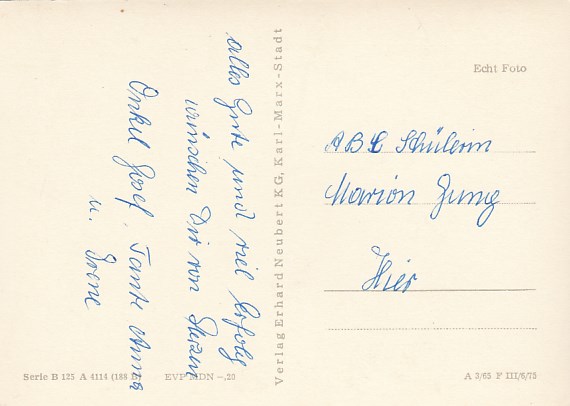 Alles Gute und viel Erfolg
wünschen Dir von Herzen
Onkel Josef, Tante Anna
u. Irene
Verlag Erhard Neubert KG, Karl-Marx-Stadt
Echt Foto
ABC Schülerin
Marion Jung
Hier
Serie B 125 A 4114 (188 B) EVP MDN -,20
A 3/65 F III/6/75